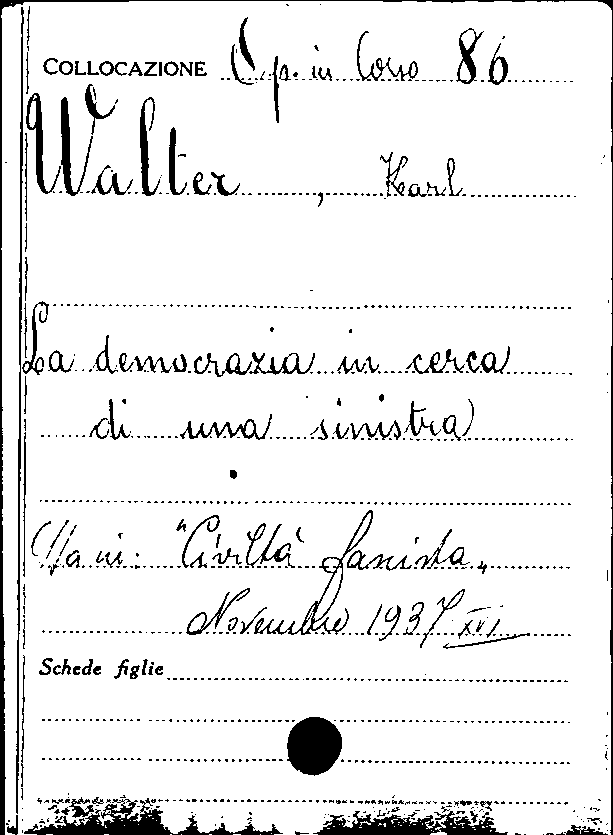 COLLOCAZIONE Op. in Corso 86
Walter, Karl
La democrazia in cerca
di una sinistra
Sta in: "Civiltà fascista„
Novembre 1937 XVI
Schede figlie